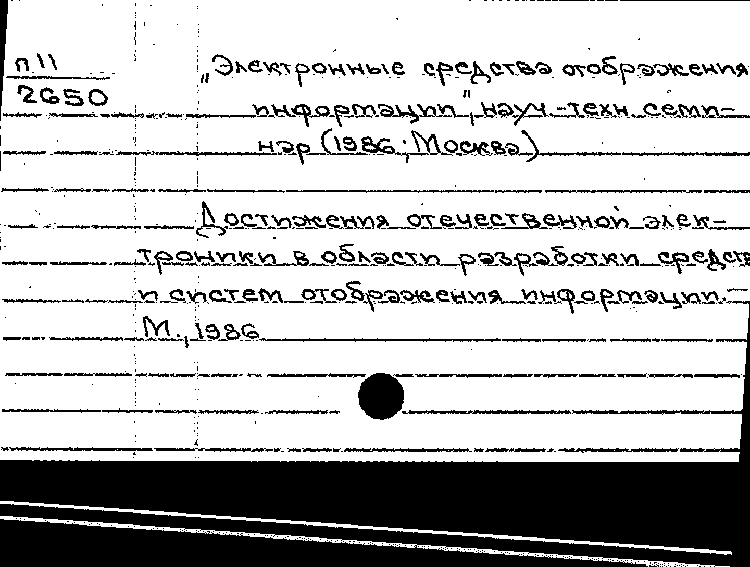 п11
2650
„Электронные средства отображения
информации", науч.-техн. семи-
нар (1986; Москва)
Достижения отечественной элек-
троники в области разработки средств
и систем отображения информации.—
М., 1986